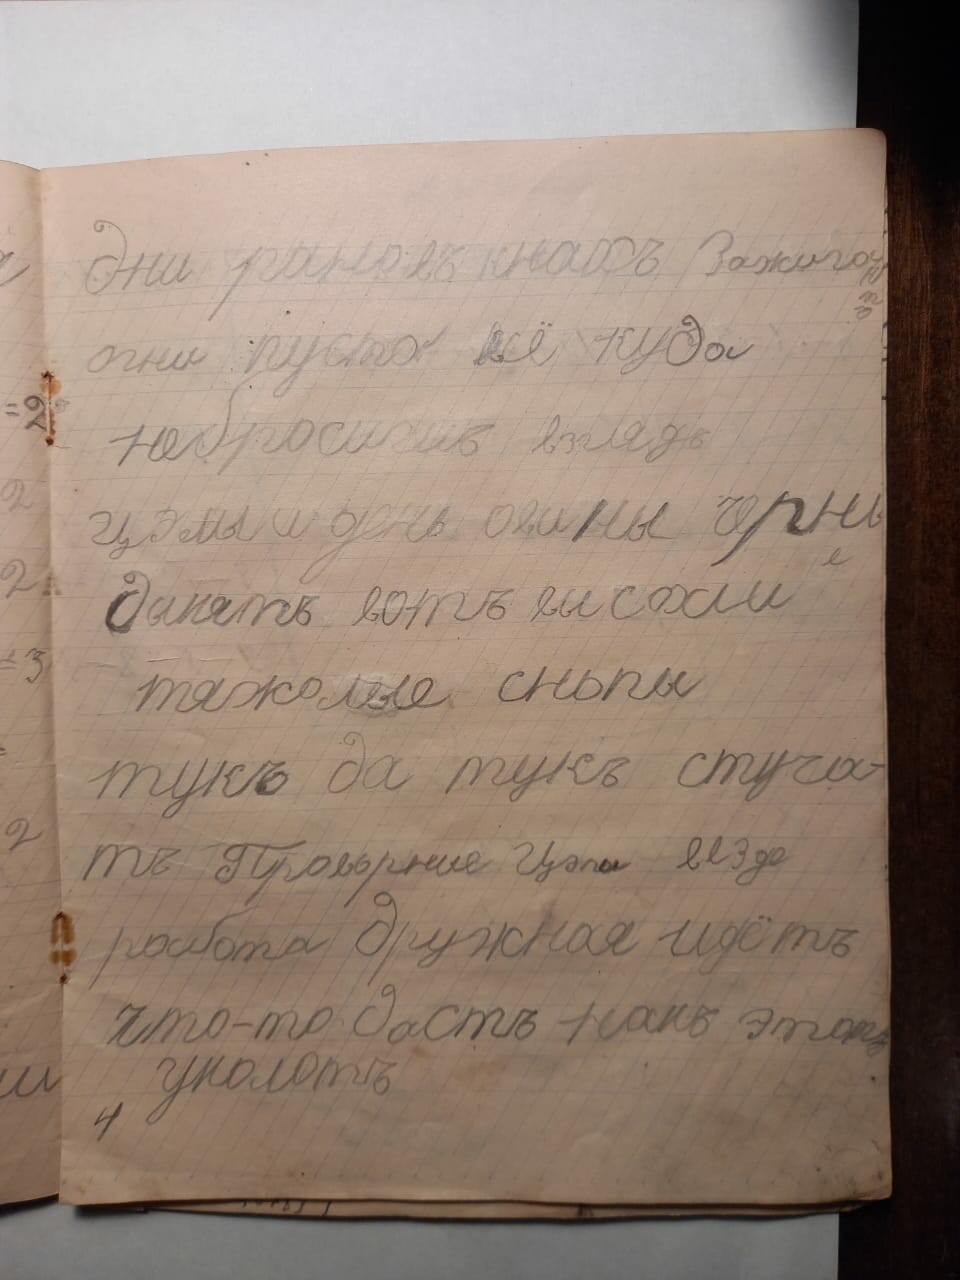 Дни рановъ кнахъ Зажигаютъ
огни пусто всё куда
небросишь взглядъ
цэлы и день овины черны
дынятъ вотъ высохли
тяжолые снопы
тукъ да тукъ стуча-
тъ Проворние Цэпи везде
работа дружная идётъ
что-то дастъ намъ этотъ
умолотъ
4
=2
2
2
=3
2